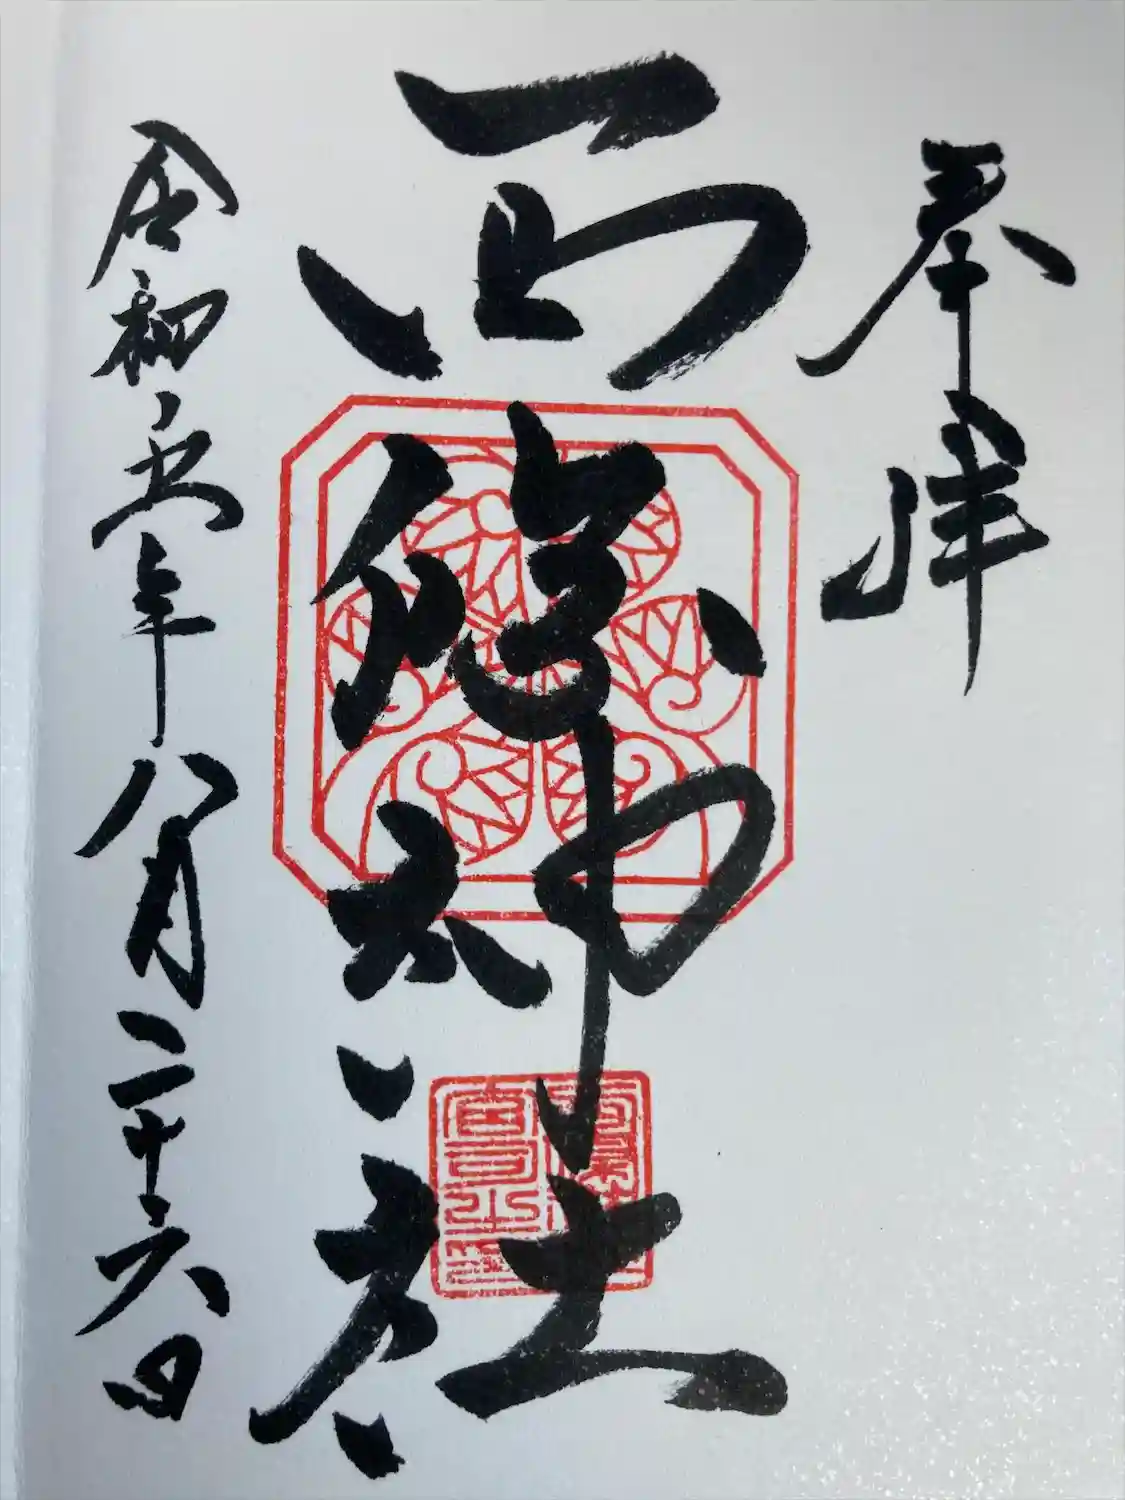 奉拝
西條神社
令和五年八月二十六日